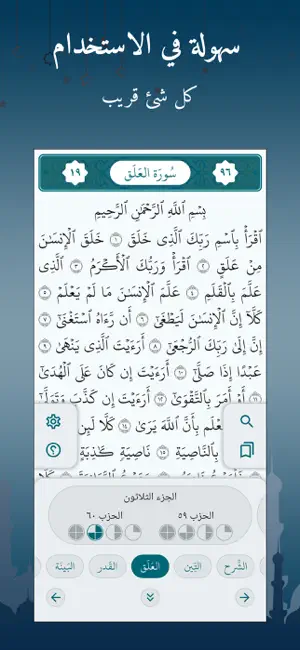 سهولة في الاستخدام
كل شئ قريب
٩٦ سُورَة العَلَق ١٩
بِسْمِ ٱللَّهِ ٱلرَّحْمَٰنِ ٱلرَّحِيمِ
ٱقْرَأْ بِٱسْمِ رَبِّكَ ٱلَّذِى خَلَقَ ١ خَلَقَ ٱلْإِنسَٰنَ
مِنْ عَلَقٍ ٢ ٱقْرَأْ وَرَبُّكَ ٱلْأَكْرَمُ ٣ ٱلَّذِى
عَلَّمَ بِٱلْقَلَمِ ٤ عَلَّمَ ٱلْإِنسَٰنَ مَا لَمْ يَعْلَمْ ٥
كَلَّآ إِنَّ ٱلْإِنسَٰنَ لَيَطْغَىٰٓ ٦ أَن رَّءَاهُ ٱسْتَغْنَىٰٓ ٧
إِنَّ إِلَىٰ رَبِّكَ ٱلرُّجْعَىٰٓ ٨ أَرَءَيْتَ ٱلَّذِى يَنْهَىٰ ٩
عَبْدًا إِذَا صَلَّىٰٓ ١٠ أَرَءَيْتَ إِن كَانَ عَلَى ٱلْهُدَىٰٓ
١١ أَوْ أَمَرَ بِٱلتَّقْوَىٰٓ ١٢ أَرَءَيْتَ إِن كَذَّبَ وَتَوَلَّىٰٓ
بِأَنَّ ٱللَّهَ يَرَىٰ ١٤ كَلَّا لَئِن
بِٱلنَّاصِيَةِ ١٥ نَاصِيَةٍ كَٰذِبَةٍ
كَلَّا
الجزء الثلاثون
الحزب ٥٩ الحزب ٦٠
الشَّرح التِّين العَلَق القَدر البَينَة